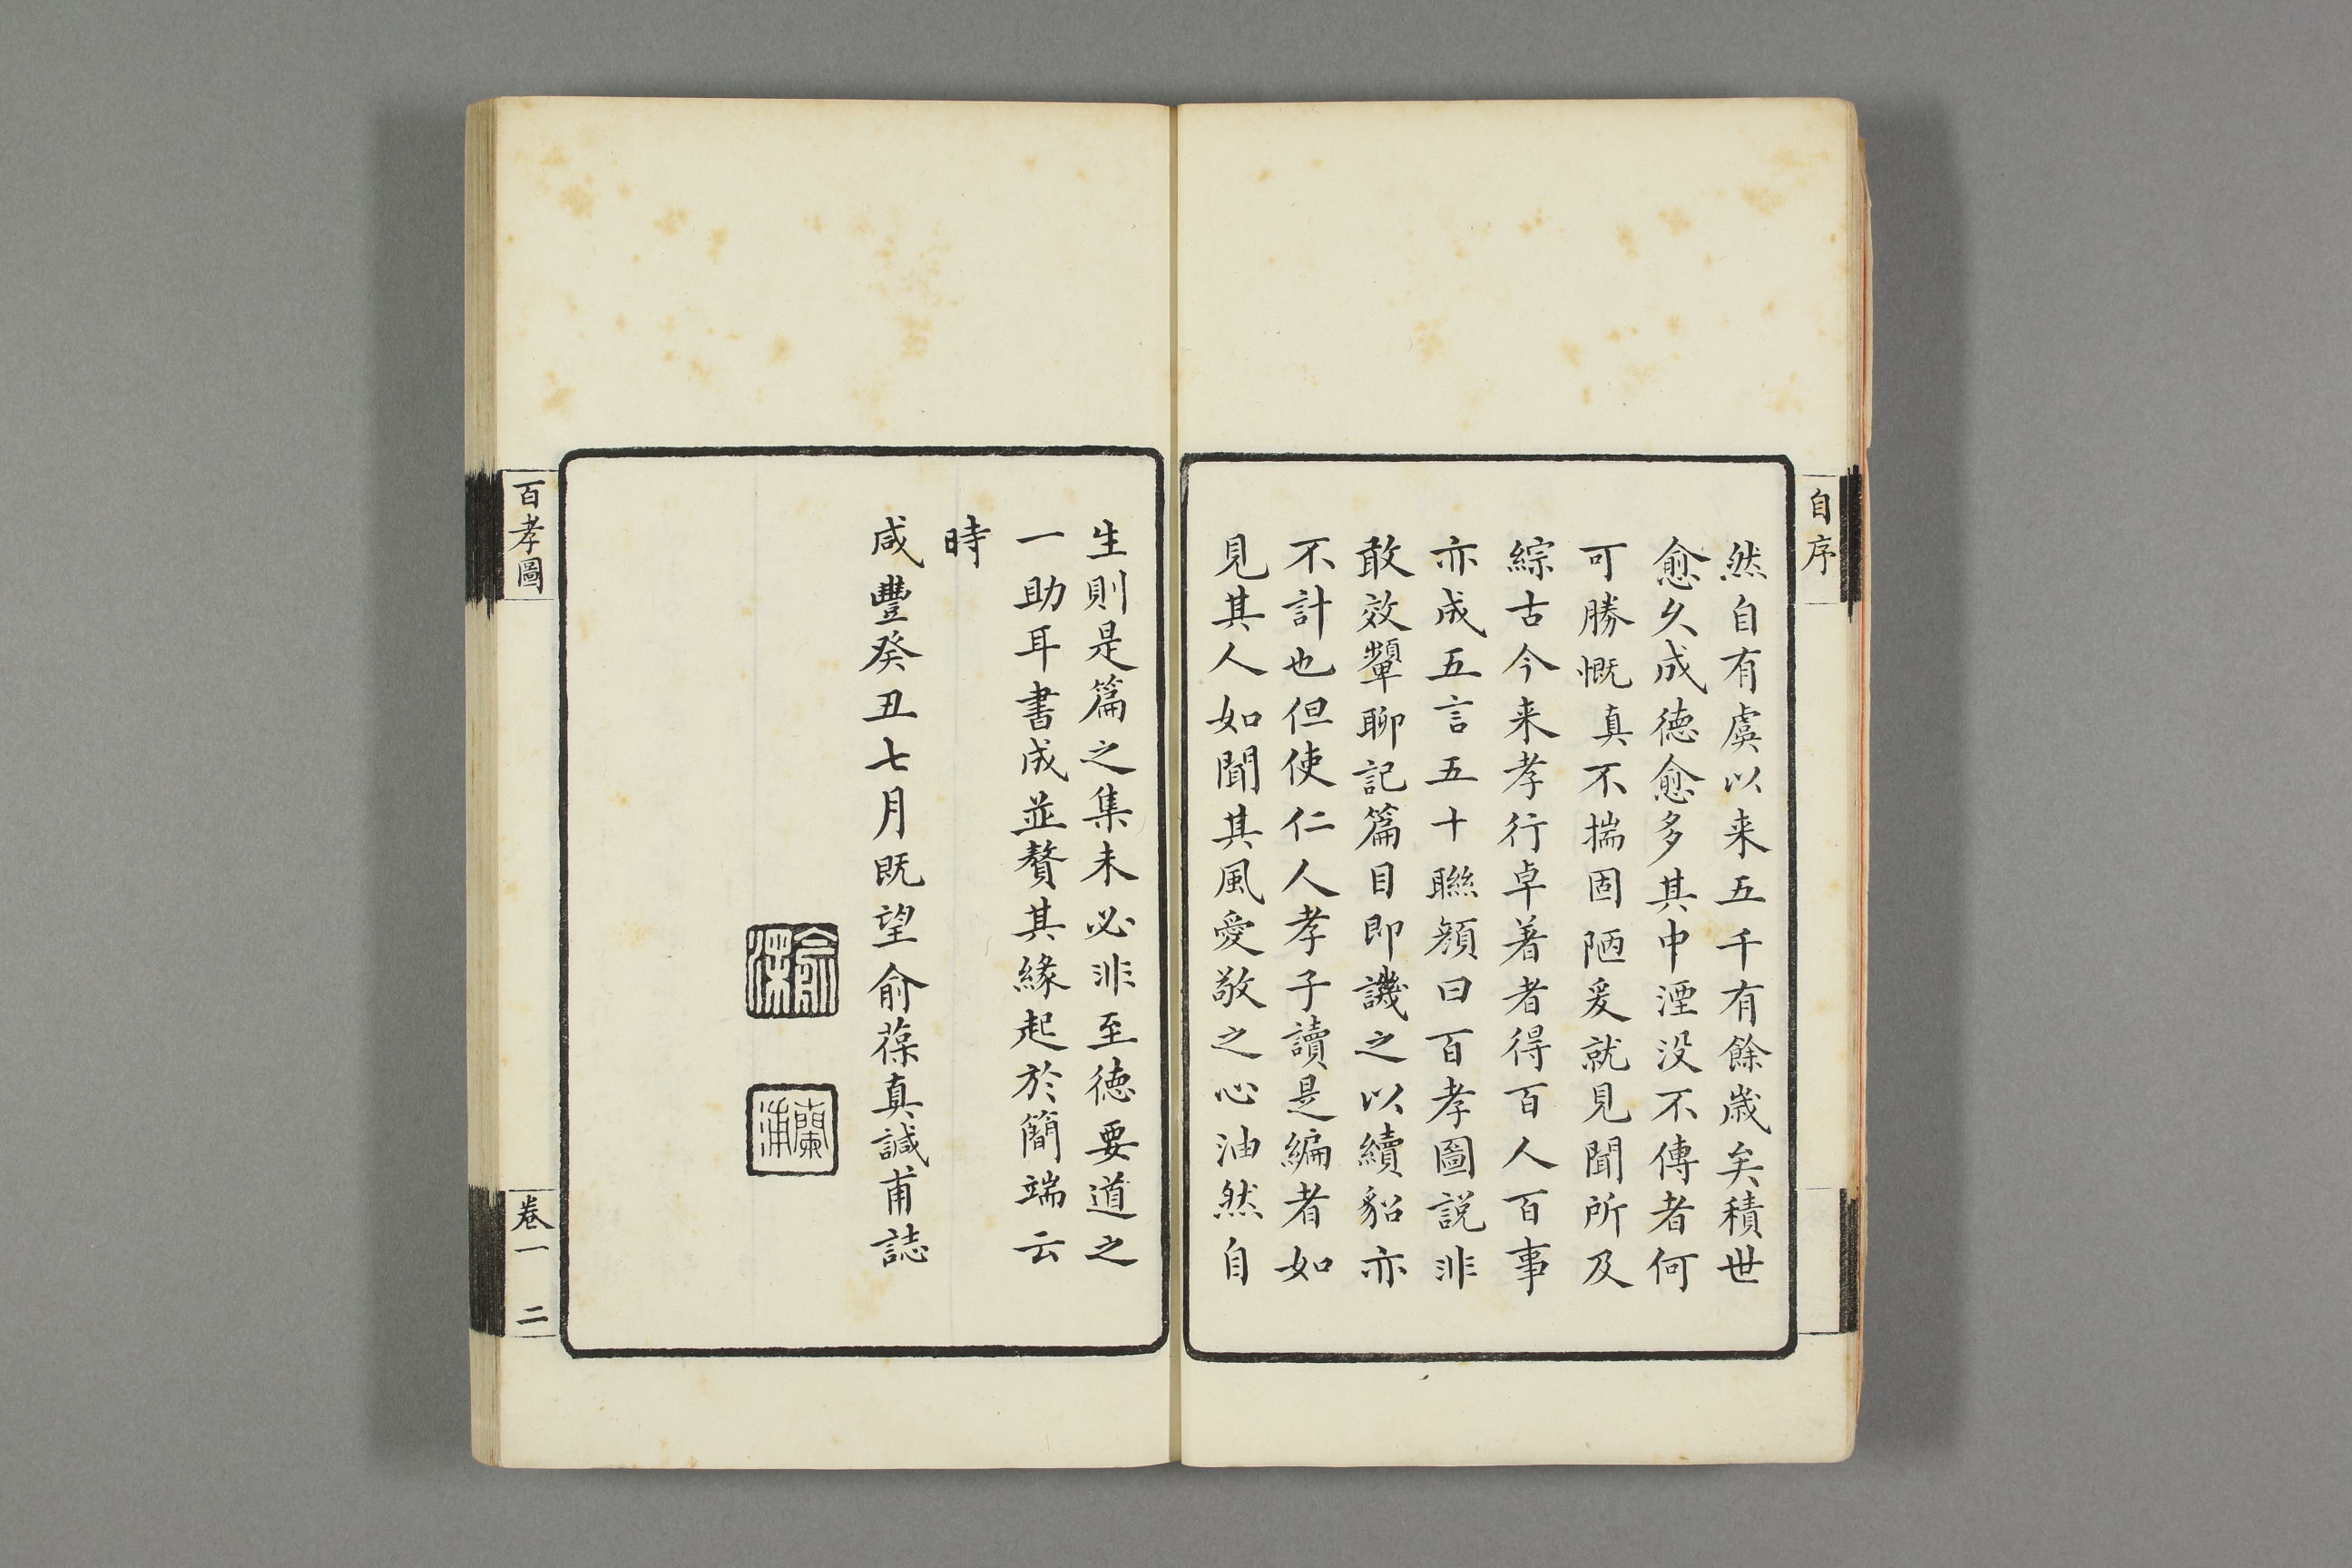 自序
然自有虞以来五千有餘歲矣積世
愈久成德愈多其中湮没不傳者何
可勝慨真不揣固陋爰就見聞所及
綜古今来孝行卓著者得百人百事
亦成五言五十聯顏曰百孝圖説非
敢效顰聊記篇目即譏之以續貂亦
不計也但使仁人孝子讀是編者如
見其人如聞其風愛敬之心油然自
生則是篇之集未必非至德要道之
一助耳書成並贅其緣起於簡端云
時
咸豐癸丑七月既望俞葆真諴甫誌
蘭浦
百孝圖
卷一
二